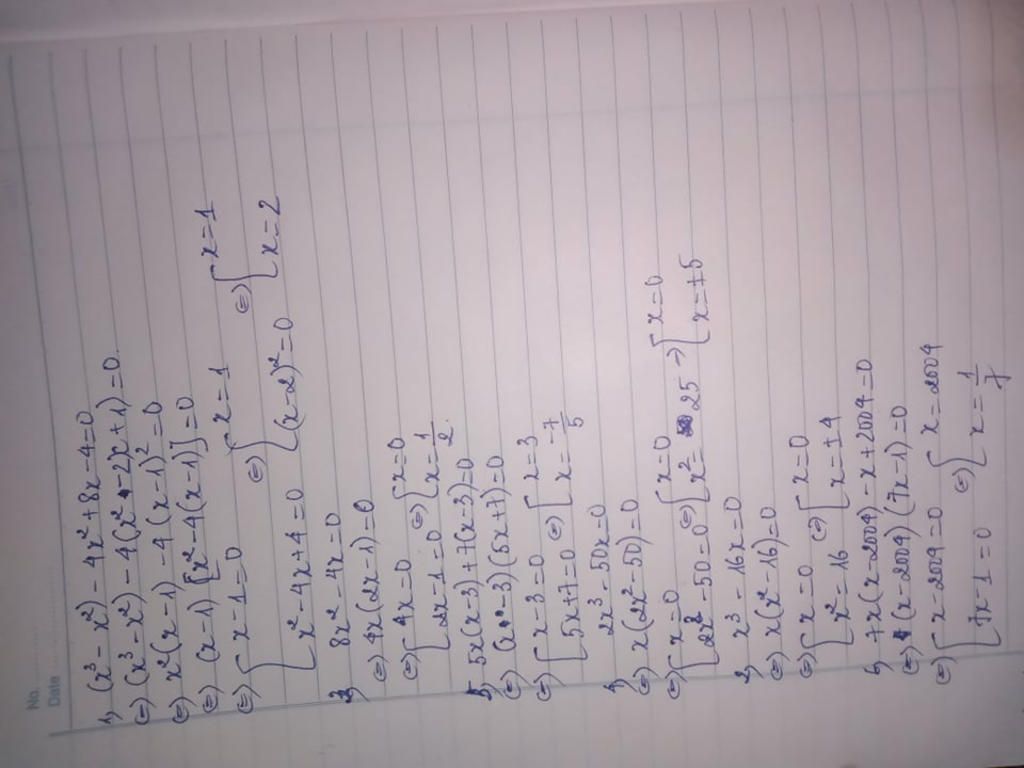 No.
Date
1) (x³-x²)-4x²+8x-4=0
(=) (x³-x²)-4(x²-2x+1)=0
(=) x²(x-1)-4(x-1)²=0
(=) (x-1)[x²-4(x-1)]=0
(=) [x-1=0 (=) [x=1 (=) [x=1
[x²-4x+4=0 [(x-2)²=0 [x=2
8x²-4x=0
(=) 4x(2x-1)=0
(=) [4x=0 (=) [x=0
[2x-1=0 [x=1/2
5x(x-3)+7(x-3)=0
(=) (x-3)(5x+7)=0
(=) [x-3=0 (=) [x=3
[5x+7=0 [x=-7/5
1) 2x³-50x=0
(=) x(2x²-50)=0
(=) [x=0 (=) [x=0 → [x=0
[2x²-50=0 [x²=25 [x=±5
2) x³-16x=0
(=) x(x²-16)=0
(=) [x=0 (=) [x=0
[x²=16 [x=±4
7x(x-2004)-x+2004=0
(=) (x-2004)(7x-1)=0
(=) [x-2004=0 (=) [x=2004
[7x-1=0 [x=1/7